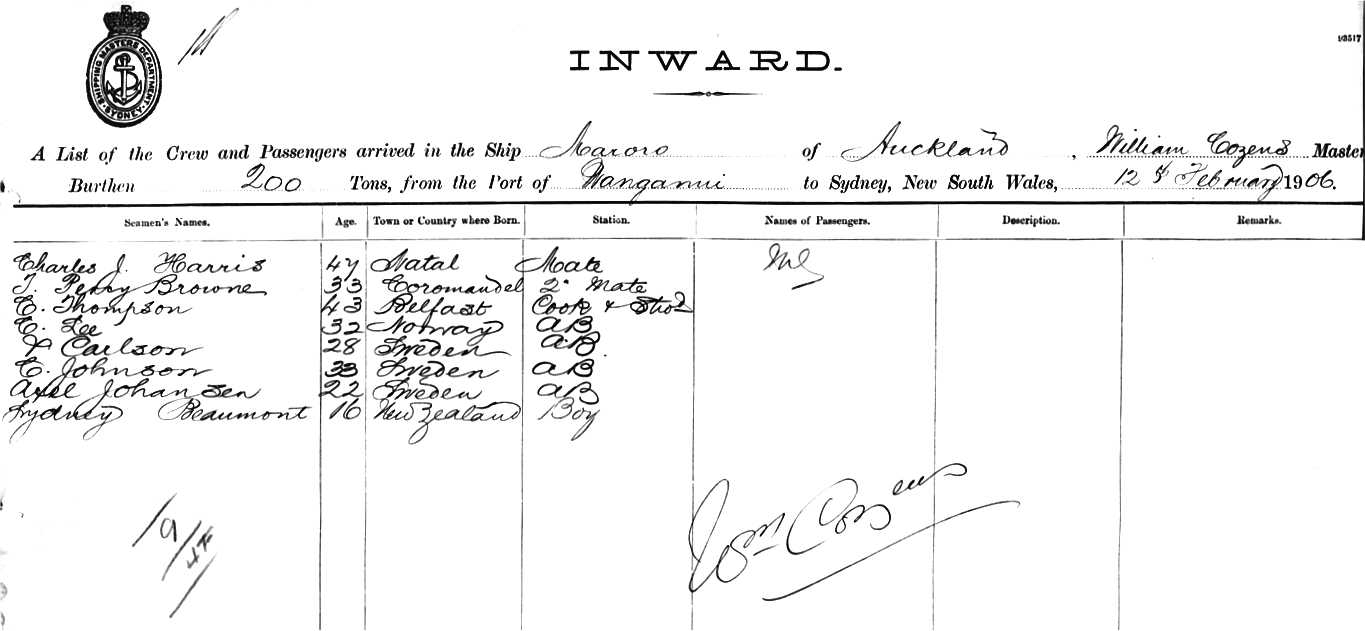 SHIPPING MASTERS DEPARTMENT. SYDNEY.
13517
INWARD.
A List of the Crew and Passengers arrived in the Ship Maroro of Auckland, William Cozens Master
Burthen 200 Tons, from the Port of Wanganui to Sydney, New South Wales, 12th February 1906.
Seamen's Names. Age. Town or Country where Born. Station. Names of Passengers. Description. Remarks.
Charles J. Harris 47 Natal Mate Nil
T. Percy Browne 33 Coromandel 2º Mate
E. Thompson 43 Belfast Cook & Stwd
E. Lee 32 Norway AB
Carlson 28 Sweden AB
E. Johnson 33 Sweden AB
Axel Johansen 22 Sweden AB
Sydney Beaumont 16 New Zealand Boy
Wm Cozens
19/